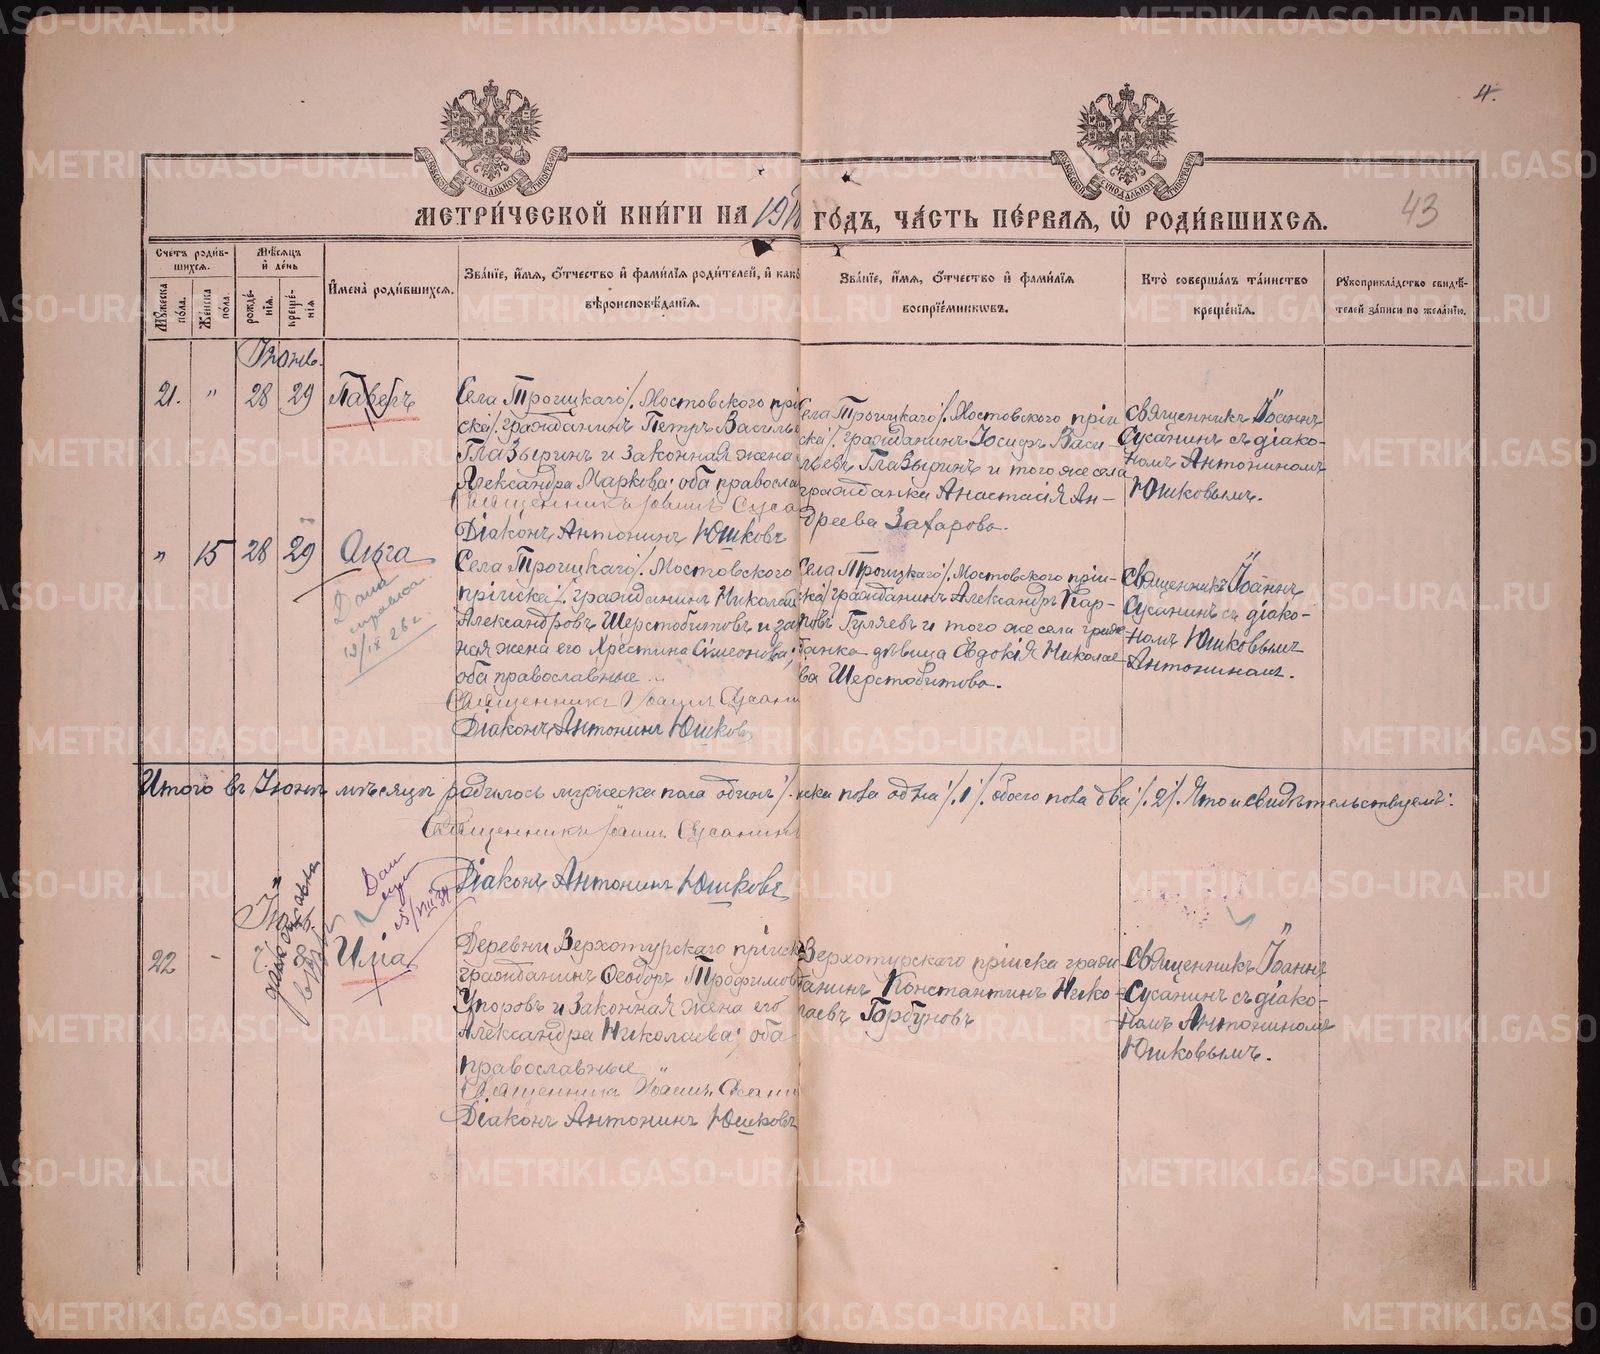 4.
43
МЕТРИ́ЧЕСКОЙ КНИ́ГИ НА 191 ГО́ДЪ, ЧА́СТЬ ПЕ́РВАЯ, Ѡ РОДИ́ВШИХСЯ.
Счетъ роди́вшихся.
Мѣ́сяцъ и де́нь
Мꙋ́жеска по́ла.
Же́нска по́ла.
рожде́нїя.
креще́нїя
И́мена̀ роди́вшихся.
Зва́нїе, и́мя, ѻ́тчество и фами́лїя роди́телей, и како
вѣроисповѣ́данїя.
Зва́нїе, и́мя, ѻ́тчество и фами́лїя
воспрїе́мникѡвъ.
Кто̀ соверша́лъ та́инство
креще́нїя.
Рꙋкоприкла́дство свидѣ́-
телей за́писи по жела́нїю.
Іюнь.
21. " 28 29 Павелъ
Села Троицкаго /. Мостовского прі
ска /. гражданинъ Петръ Василье
Глазыринъ и законная жена
Александра Маркова; оба правосла
Священникъ Іоаннъ Суса
Діаконъ Антонинъ Юшковъ
Села Троицкаго /. Мостовского прiи
ска /. гражданинъ Іосифъ Васи-
льевъ Глазыринъ и того же села
гражданка Анастасія Ан-
дреева Захарова.
Священникъ Іоаннъ
Сусанинъ съ діако-
номъ Антониномъ
Юшковымъ.
" 15 28 29 Ольга
Дана
справка
13/IX 26 г
Села Троицкаго /. Мостовского
пріиска /. гражданинъ Николай
Александровъ Шерстобитовъ и за
ная жена его Христина Симеонова;
оба православные
Священникъ Іоаннъ Сусани
Діаконъ Антонинъ Юшковъ
Села Троицкаго /. Мостовского прiи-
ска /. гражданинъ Александръ Кар-
повъ Гуляевъ и того же села граж
данка дѣвица Евдокія Николае
ва Шерстобитова.
Священникъ Іоаннъ
Сусанинъ съ діако-
номъ Юшковымъ
Антониномъ.
Итого въ Іюнѣ мѣсяцѣ родилось мужеска пола одинъ /. нска пола одна /. 1 /. обоего пола два /. 2 /. Что и свидѣтельствуемъ:
Священникъ Іоаннъ Сусанинъ
Діаконъ Антонинъ Юшковъ
22 - Илія
Дан
25/VIII 34
Деревни Верхотурскаго пріиск
гражданинъ Ѳеодоръ Трофимов
Упоровъ и законная жена его
Александра Николаева; оба
православные
Священникъ Іоаннъ Сусани
Діаконъ Антонинъ Юшковъ
Верхотурскаго пріиска граж
данинъ Константинъ Нико-
лаевъ Горбуновъ
Священникъ Іоаннъ
Сусанинъ съ діако-
номъ Антониномъ
Юшковымъ.
METRIKI.GASO-URAL.RU